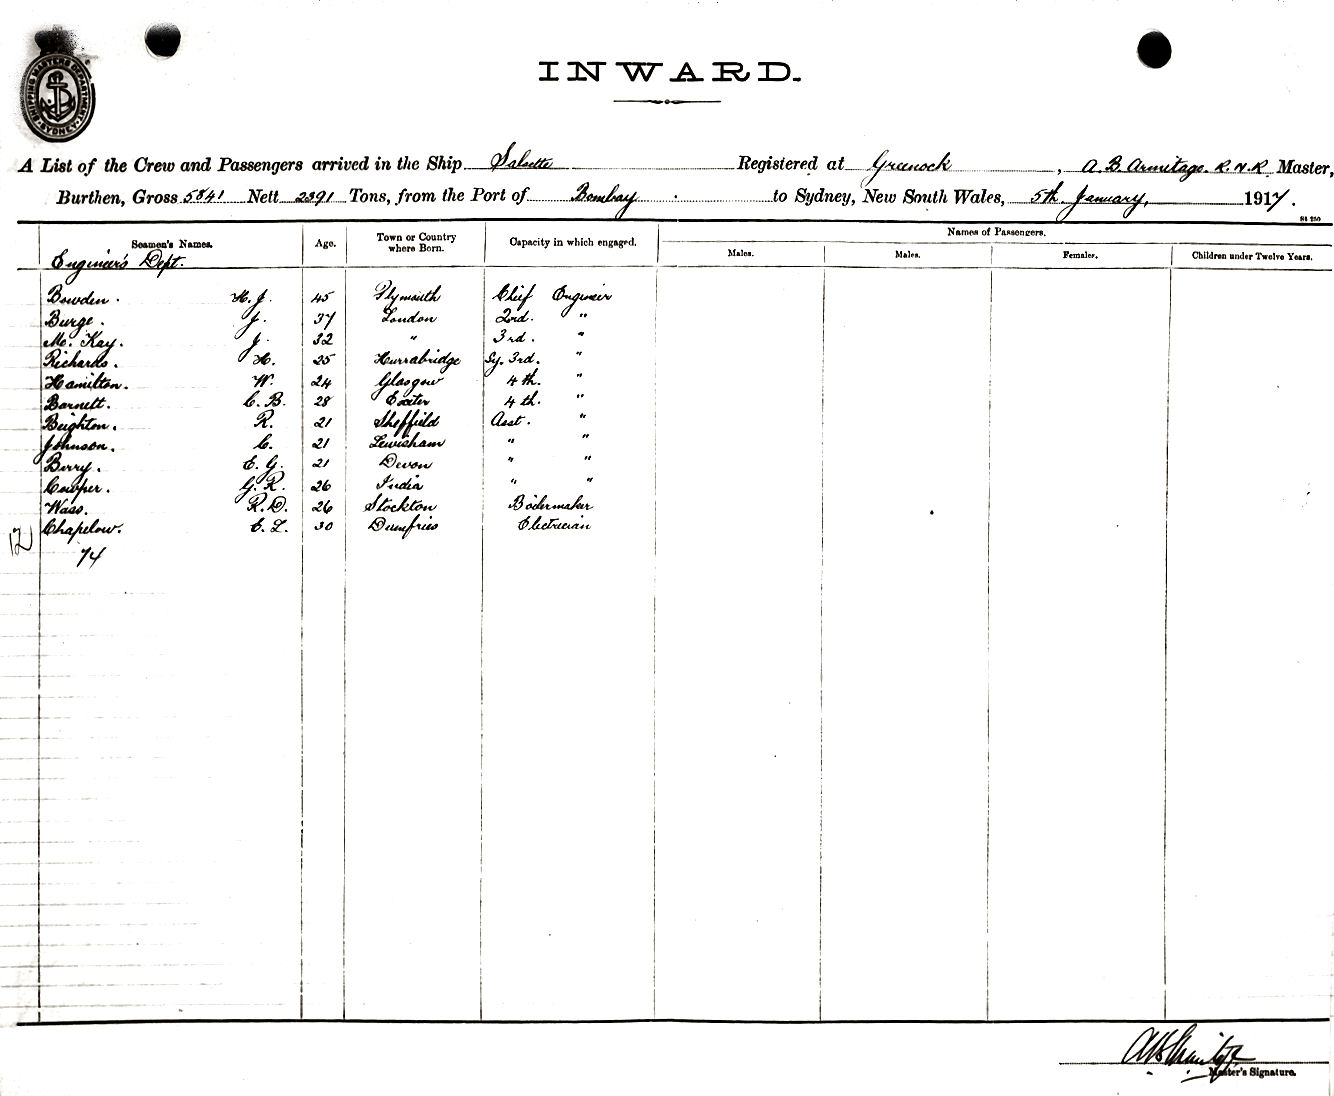 SHIPPING MASTERS DEPARTMENT
SYDNEY
INWARD.
A List of the Crew and Passengers arrived in the Ship Salsette Registered at Greenock, A. B. Armitage. R.N.R Master,
Burthen, Gross 5841 Nett 2391 Tons, from the Port of Bombay to Sydney, New South Wales, 5th January, 1917.
S4 250
Seamen's Names. Age. Town or Country where Born. Capacity in which engaged. Names of Passengers.
Males. Males. Females. Children under Twelve Years.
Engineer's Dept.
Bowden. H. J. 45 Plymouth Chief Engineer
Burge. J. 37 London 2nd. "
Mc. Kay. J. 32 " 3rd. "
Richards. H. 25 Hurrabridge Sy. 3rd. "
Hamilton. W. 24 Glasgow 4th. "
Barnett. C. B. 28 Exeter 4th. "
Beighton. R. 21 Sheffield Asst. "
Johnson. C. 21 Lewisham " "
Berry. E. G. 21 Devon " "
Cowper. G. R. 26 India " "
Wass. R. D. 26 Stockton Boilermaker
Chapelow. E. L. 30 Dumfries Electrician
12
74
Master's Signature.